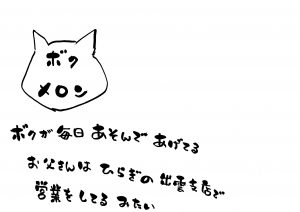 ボク
メロン
ボクが毎日あそんであげてる
お父さんは ひらぎの 出雲支店で
営業をしてる みたい